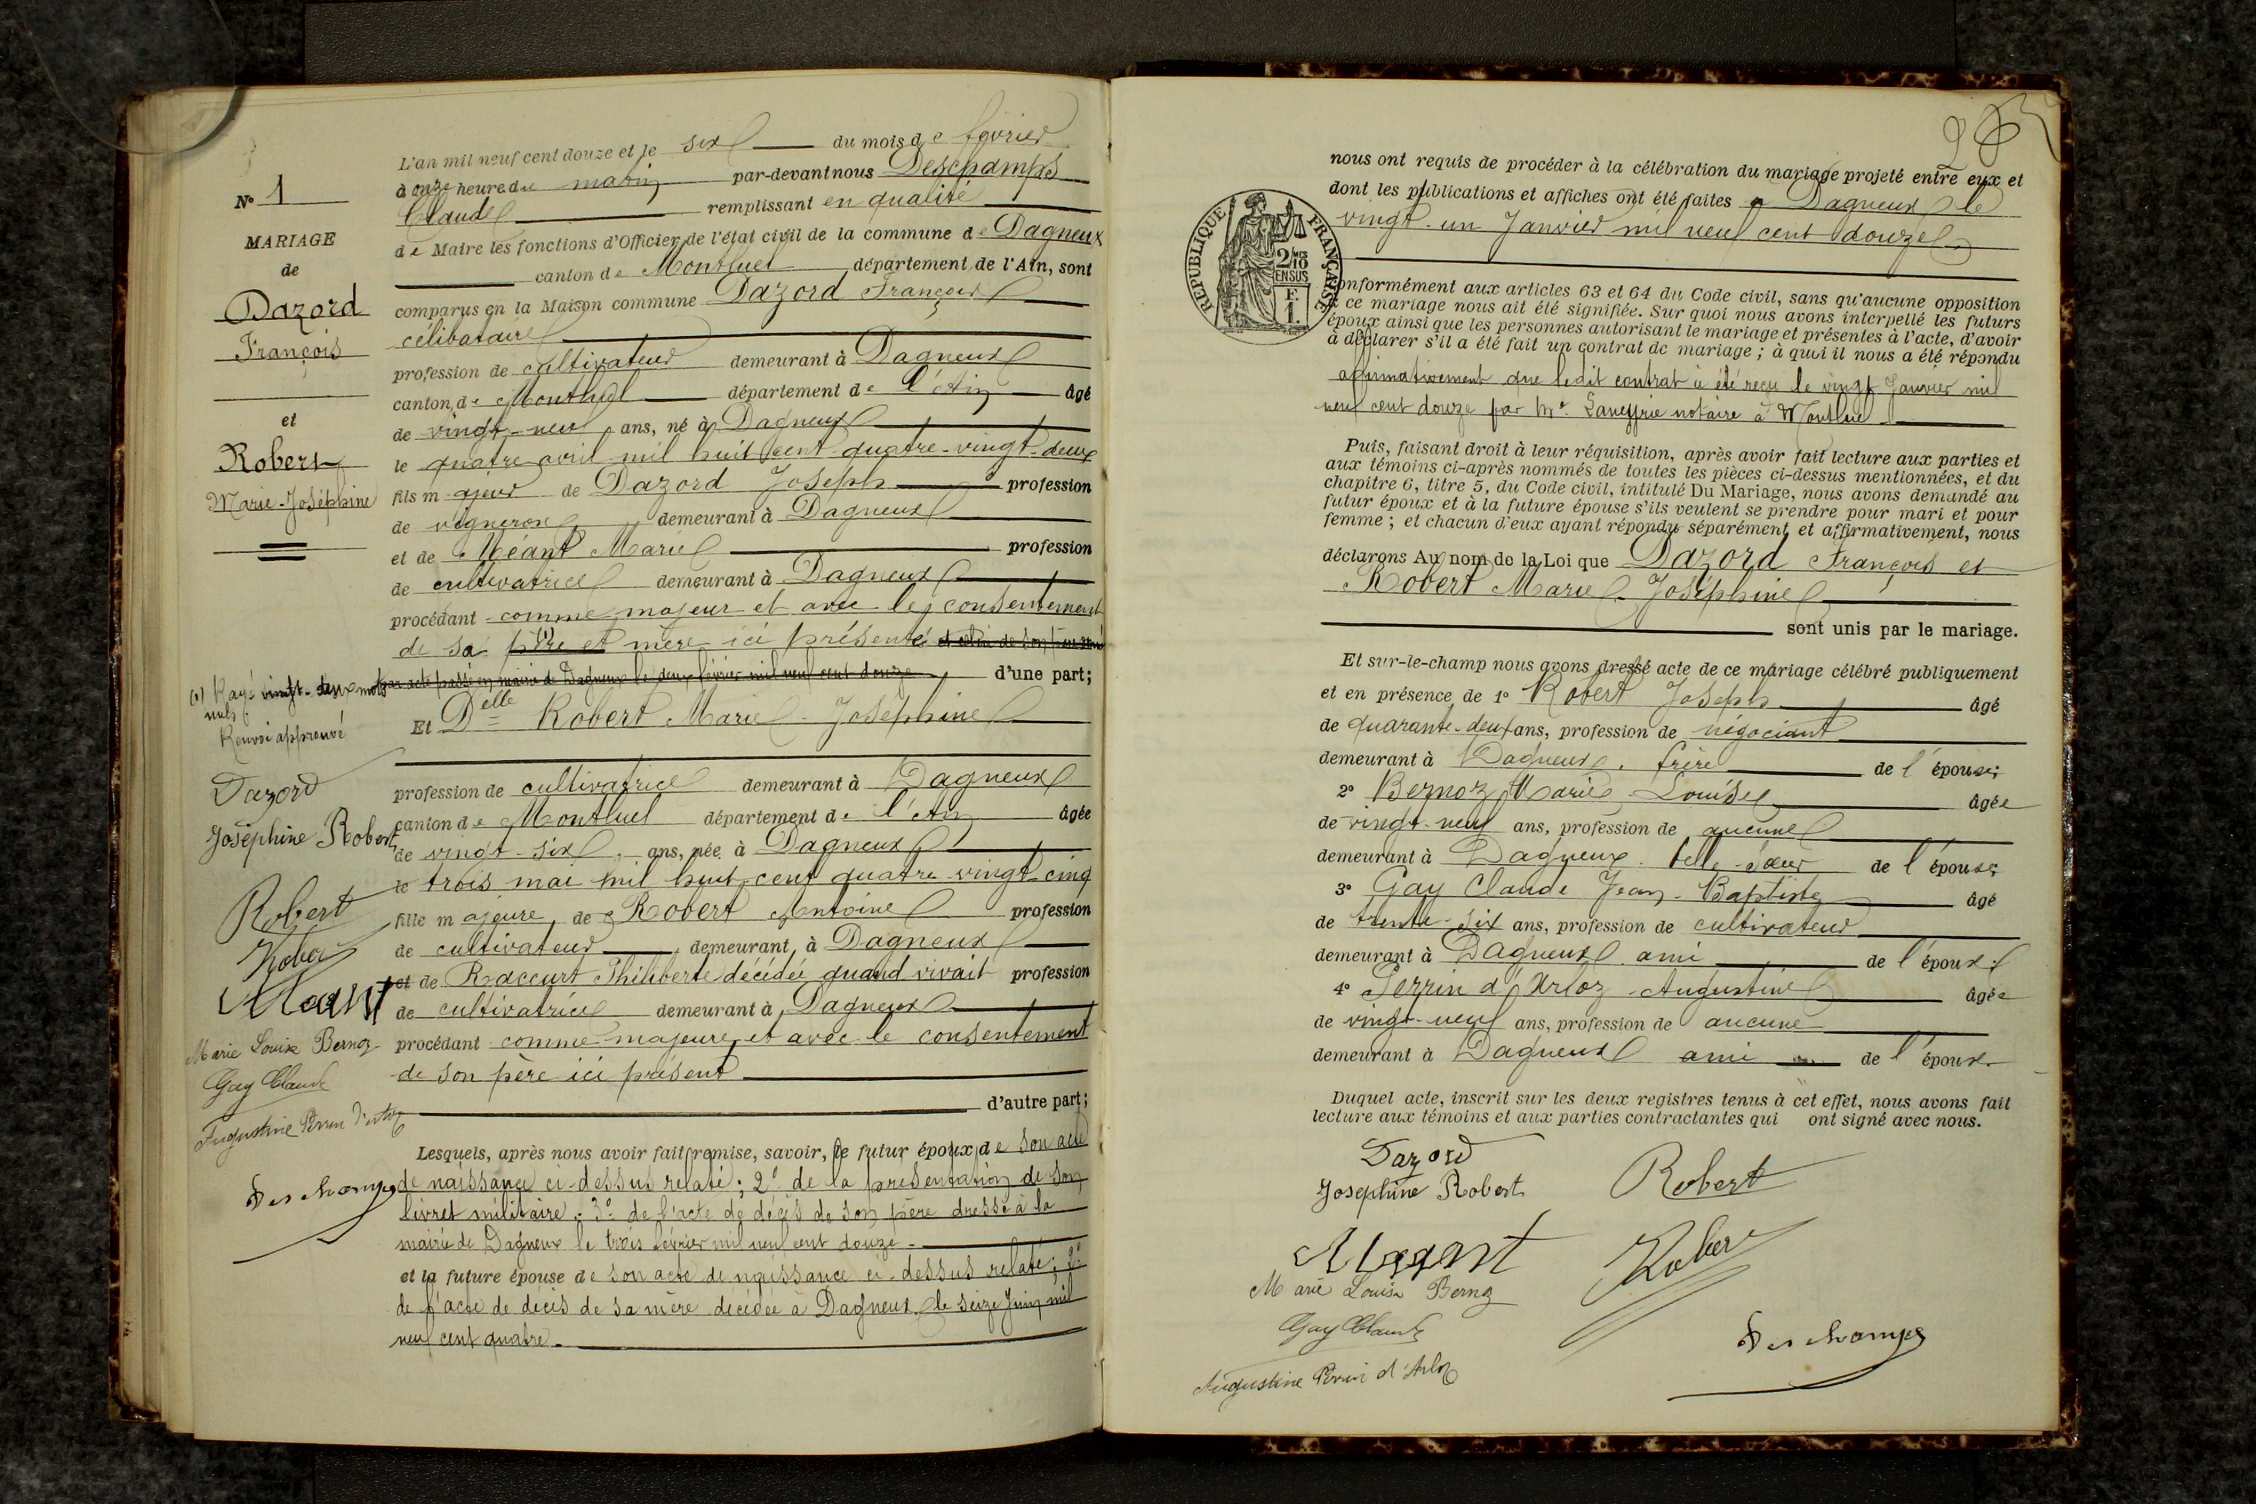 N° 1
MARIAGE
de
Dazord
François
et
Robert
Marie-Joséphine
L'an mil neuf cent douze et le six du mois de février
à onze heure du matin par-devant nous Deschamps
Claude remplissant en qualité
de Maire les fonctions d'Officier de l'état civil de la commune de Dagneux
canton de Montluel département de l'Ain, sont
comparus en la Maison commune Dazord François
célibataire
profession de cultivateur demeurant à Dagneux
canton de Montluel département de l'Ain âgé
de vingt-neuf ans, né à Dagneux
le quatre avril mil huit cent quatre-vingt-deux
fils majeur de Dazord Joseph profession
de vigneron demeurant à Dagneux
et de Méant Marie profession
de cultivatrice demeurant à Dagneux
procédant comme majeur et avec le consentement
de sa père et mère ici présente et celui de son père donné
par acte passé en mairie de Dagneux le deux février mil neuf cent douze d'une part;
(1) Rayé vingt-deux mots
nuls
Renvoi approuvé
Et Delle Robert Marie-Joséphine
profession de cultivatrice demeurant à Dagneux
canton de Montluel département de l'Ain âgée
de vingt-six ans, née à Dagneux
le trois mai mil huit cent quatre-vingt-cinq
fille majeure de Robert Antoine profession
de cultivateur demeurant à Dagneux
et de Raccurt Philiberte décédée quand vivait profession
de cultivatrice demeurant à Dagneux
procédant comme majeure et avec le consentement
de son père ici présent
d'autre part;
Dazord
Joséphine Robert
Robert
Robert
Méant
Marie Louise Bernoz
Gay Claude
Augustine Perrin d'Arloz
Deschamps
Lesquels, après nous avoir fait remise, savoir, le futur époux de son acte
de naissance ci-dessus relaté; 2° de la présentation de son
livret militaire; 3° de l'acte de décès de son père dressé à la
mairie de Dagneux le trois février mil neuf cent douze.
et la future épouse de son acte de naissance ci-dessus relaté; 2°
de l'acte de décès de sa mère décédée à Dagneux le seize Juin mil
neuf cent quatre.
RÉPUBLIQUE FRANÇAISE
2/10mes
EN SUS
F.
1.
nous ont requis de procéder à la célébration du mariage projeté entre eux et
dont les publications et affiches ont été faites à Dagneux le
vingt-un Janvier mil neuf cent douze
onformément aux articles 63 et 64 du Code civil, sans qu'aucune opposition
à ce mariage nous ait été signifiée. Sur quoi nous avons interpellé les futurs
époux ainsi que les personnes autorisant le mariage et présentes à l'acte, d'avoir
à déclarer s'il a été fait un contrat de mariage; à quoi il nous a été répondu
affirmativement que ledit contrat a été reçu le vingt Janvier mil
neuf cent douze par Me notaire à Montluel
Puis, faisant droit à leur réquisition, après avoir fait lecture aux parties et
aux témoins ci-après nommés de toutes les pièces ci-dessus mentionnées, et du
chapitre 6, titre 5, du Code civil, intitulé Du Mariage, nous avons demandé au
futur époux et à la future épouse s'ils veulent se prendre pour mari et pour
femme; et chacun d'eux ayant répondu séparément et affirmativement, nous
déclarons Au nom de la Loi que Dazord François et
Robert Marie-Joséphine
sont unis par le mariage.
Et sur-le-champ nous avons dressé acte de ce mariage célébré publiquement
et en présence de 1° Robert Joseph âgé
de quarante-deux ans, profession de négociant
demeurant à Dagneux, frère de l'épouse;
2° Bernoz Marie-Louise âgée
de vingt-neuf ans, profession de aucune
demeurant à Dagneux belle-sœur de l'épouse;
3° Gay Claude Jean-Baptiste âgé
de trente-six ans, profession de cultivateur
demeurant à Dagneux ami de l'époux;
4° Perrin d'Arloz Augustine âgée
de vingt-neuf ans, profession de aucune
demeurant à Dagneux amie de l'époux.
Duquel acte, inscrit sur les deux registres tenus à cet effet, nous avons fait
lecture aux témoins et aux parties contractantes qui ont signé avec nous.
Dazord
Joséphine Robert
Robert
Méant
Robert
Marie Louise Bernoz
Gay Claude
Deschamps
Augustine Perrin d'Arloz